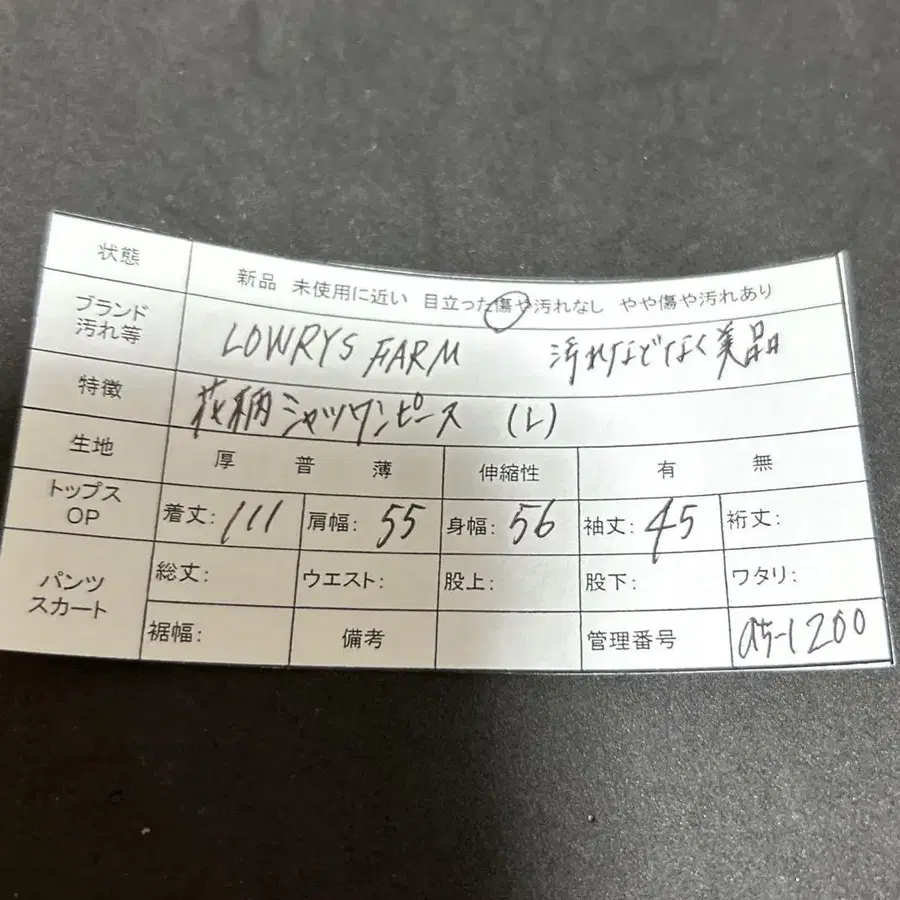 状態 新品 未使用に近い 目立った傷や汚れなし やや傷や汚れあり
ブランド
汚れ等 LOWRYS FARM 汚れなどなく美品
特徴 花柄シャツワンピース (L)
生地 厚 普 薄 伸縮性 有 無
トップス
OP 着丈: 111 肩幅: 55 身幅: 56 袖丈: 45 裄丈:
パンツ
スカート 総丈: ウエスト: 股上: 股下: ワタリ:
裾幅: 備考 管理番号